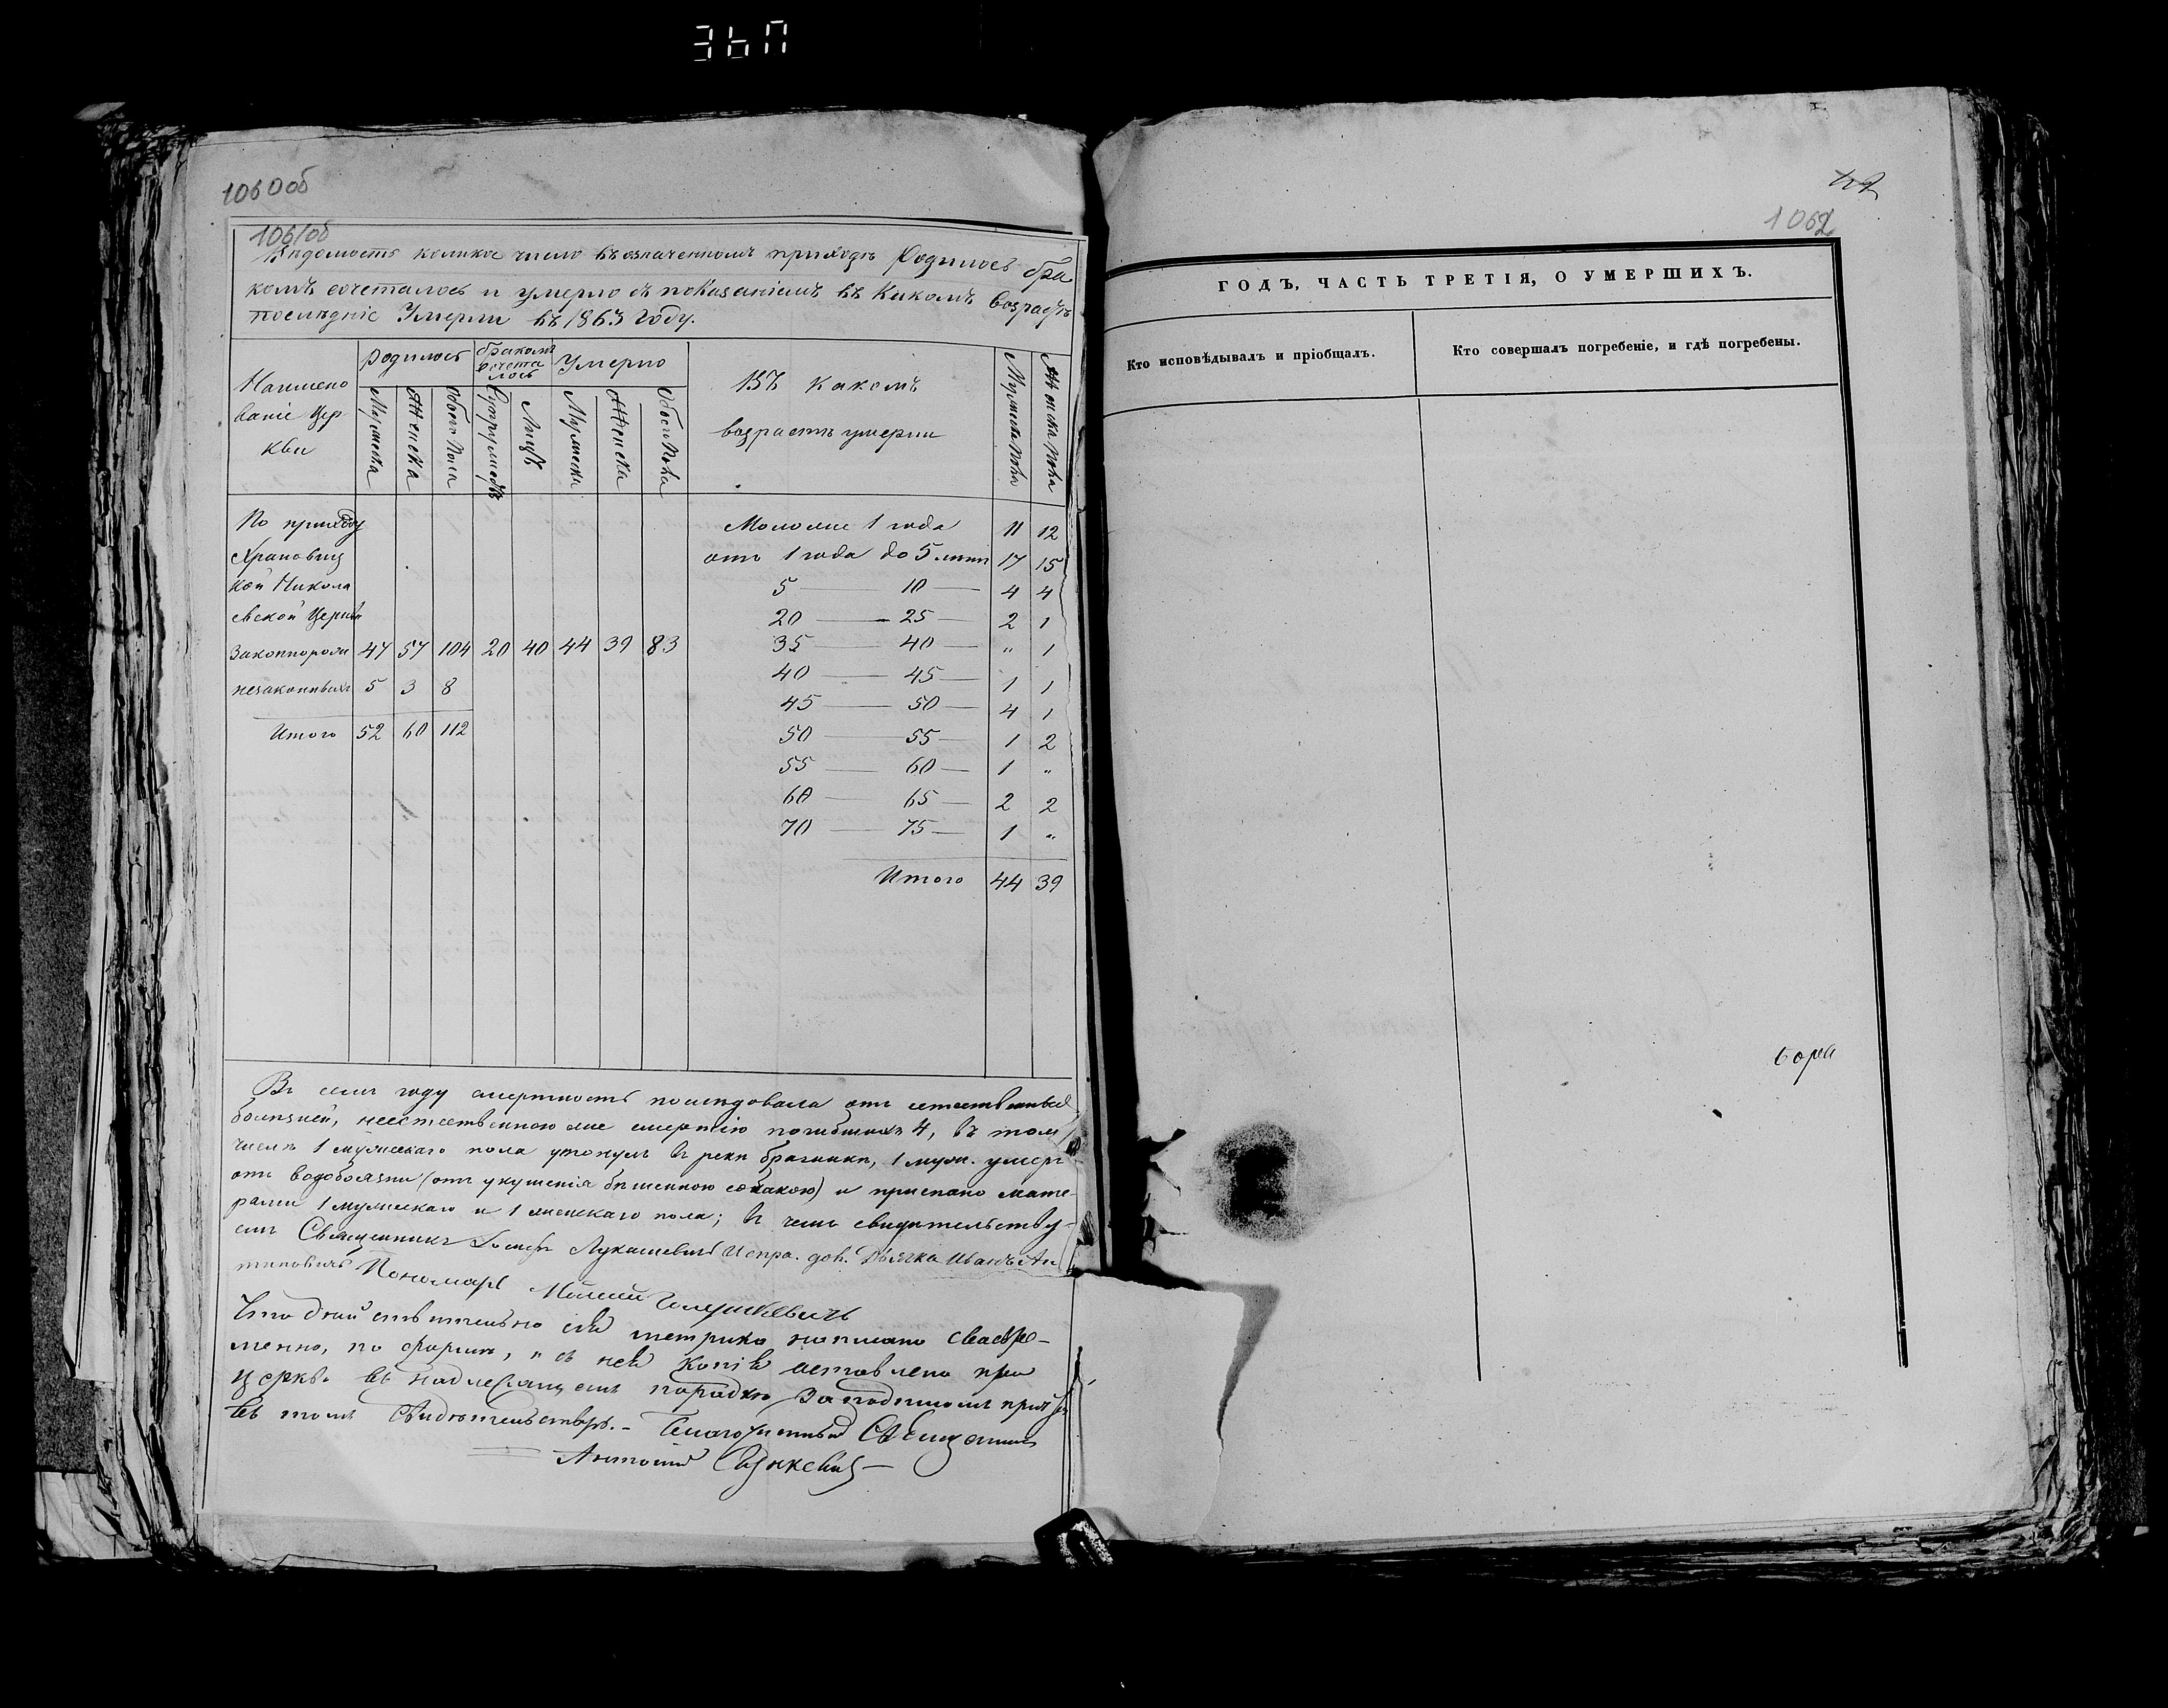 1060 об
1061 об
Вѣдомость коликое число въ означенномъ приходѣ родилось бра
комъ сочеталось и умерло съ показаніемъ въ какомъ возрастѣ
послѣдніе умерли въ 1863 году.
Наимено
ваніе Цер
кви
Родилось
бракомъ
сочета
лось
Умерло
Въ какомъ
возрастѣ умерли
Мужеска
Женска
Обоего Пола
Супружествъ
Лицъ
Мужеска
Женска
Обоего Пола
Мужеска Пола
Женска Пола
По приходу
Храковиц
кой Никола
евской Церкви
Законнорожд 47 57 104 20 40 44 39 83
незаконныхъ 5 3 8
Итого 52 60 112
Моложе 1 года 11 12
отъ 1 года до 5 лѣтъ 17 15
5 — 10 — 4 4
20 — 25 — 2 1
35 — 40 — " 1
40 — 45 — 1 1
45 — 50 — 4 1
50 — 55 — 1 2
55 — 60 — 1 "
60 — 65 — 2 2
70 — 75 — 1 "
Итого 44 39
Въ семъ году смертность послѣдовала отъ естественныхъ
болѣзней, неестественною же смертію погибшихъ 4, въ томъ
числѣ 1 мужескаго пола утонулъ въ реки Брагинки, 1 муж. умеръ
отъ водобоязни (отъ укушенія бѣшенною собакою) и приспано мате-
рями 1 мужескаго и 1 женскаго пола; въ чемъ свидѣтельству-
емъ Священникъ Лукашевичъ Испра. дол. Дьячка Иванъ Ан
типовичъ Пономарь
Что дѣйствительно сія метрика написана своевре-
менно, по формѣ, и съ ней копія оставлена при
церкви въ надлежащемъ порядкѣ за подписомъ причта
въ томъ свидѣтельствую. - Благочинный Священникъ
Антоній
1062
ГОДЪ, ЧАСТЬ ТРЕТІЯ, О УМЕРШИХЪ.
Кто исповѣдывалъ и пріобщалъ.
Кто совершалъ погребеніе, и гдѣ погребены.